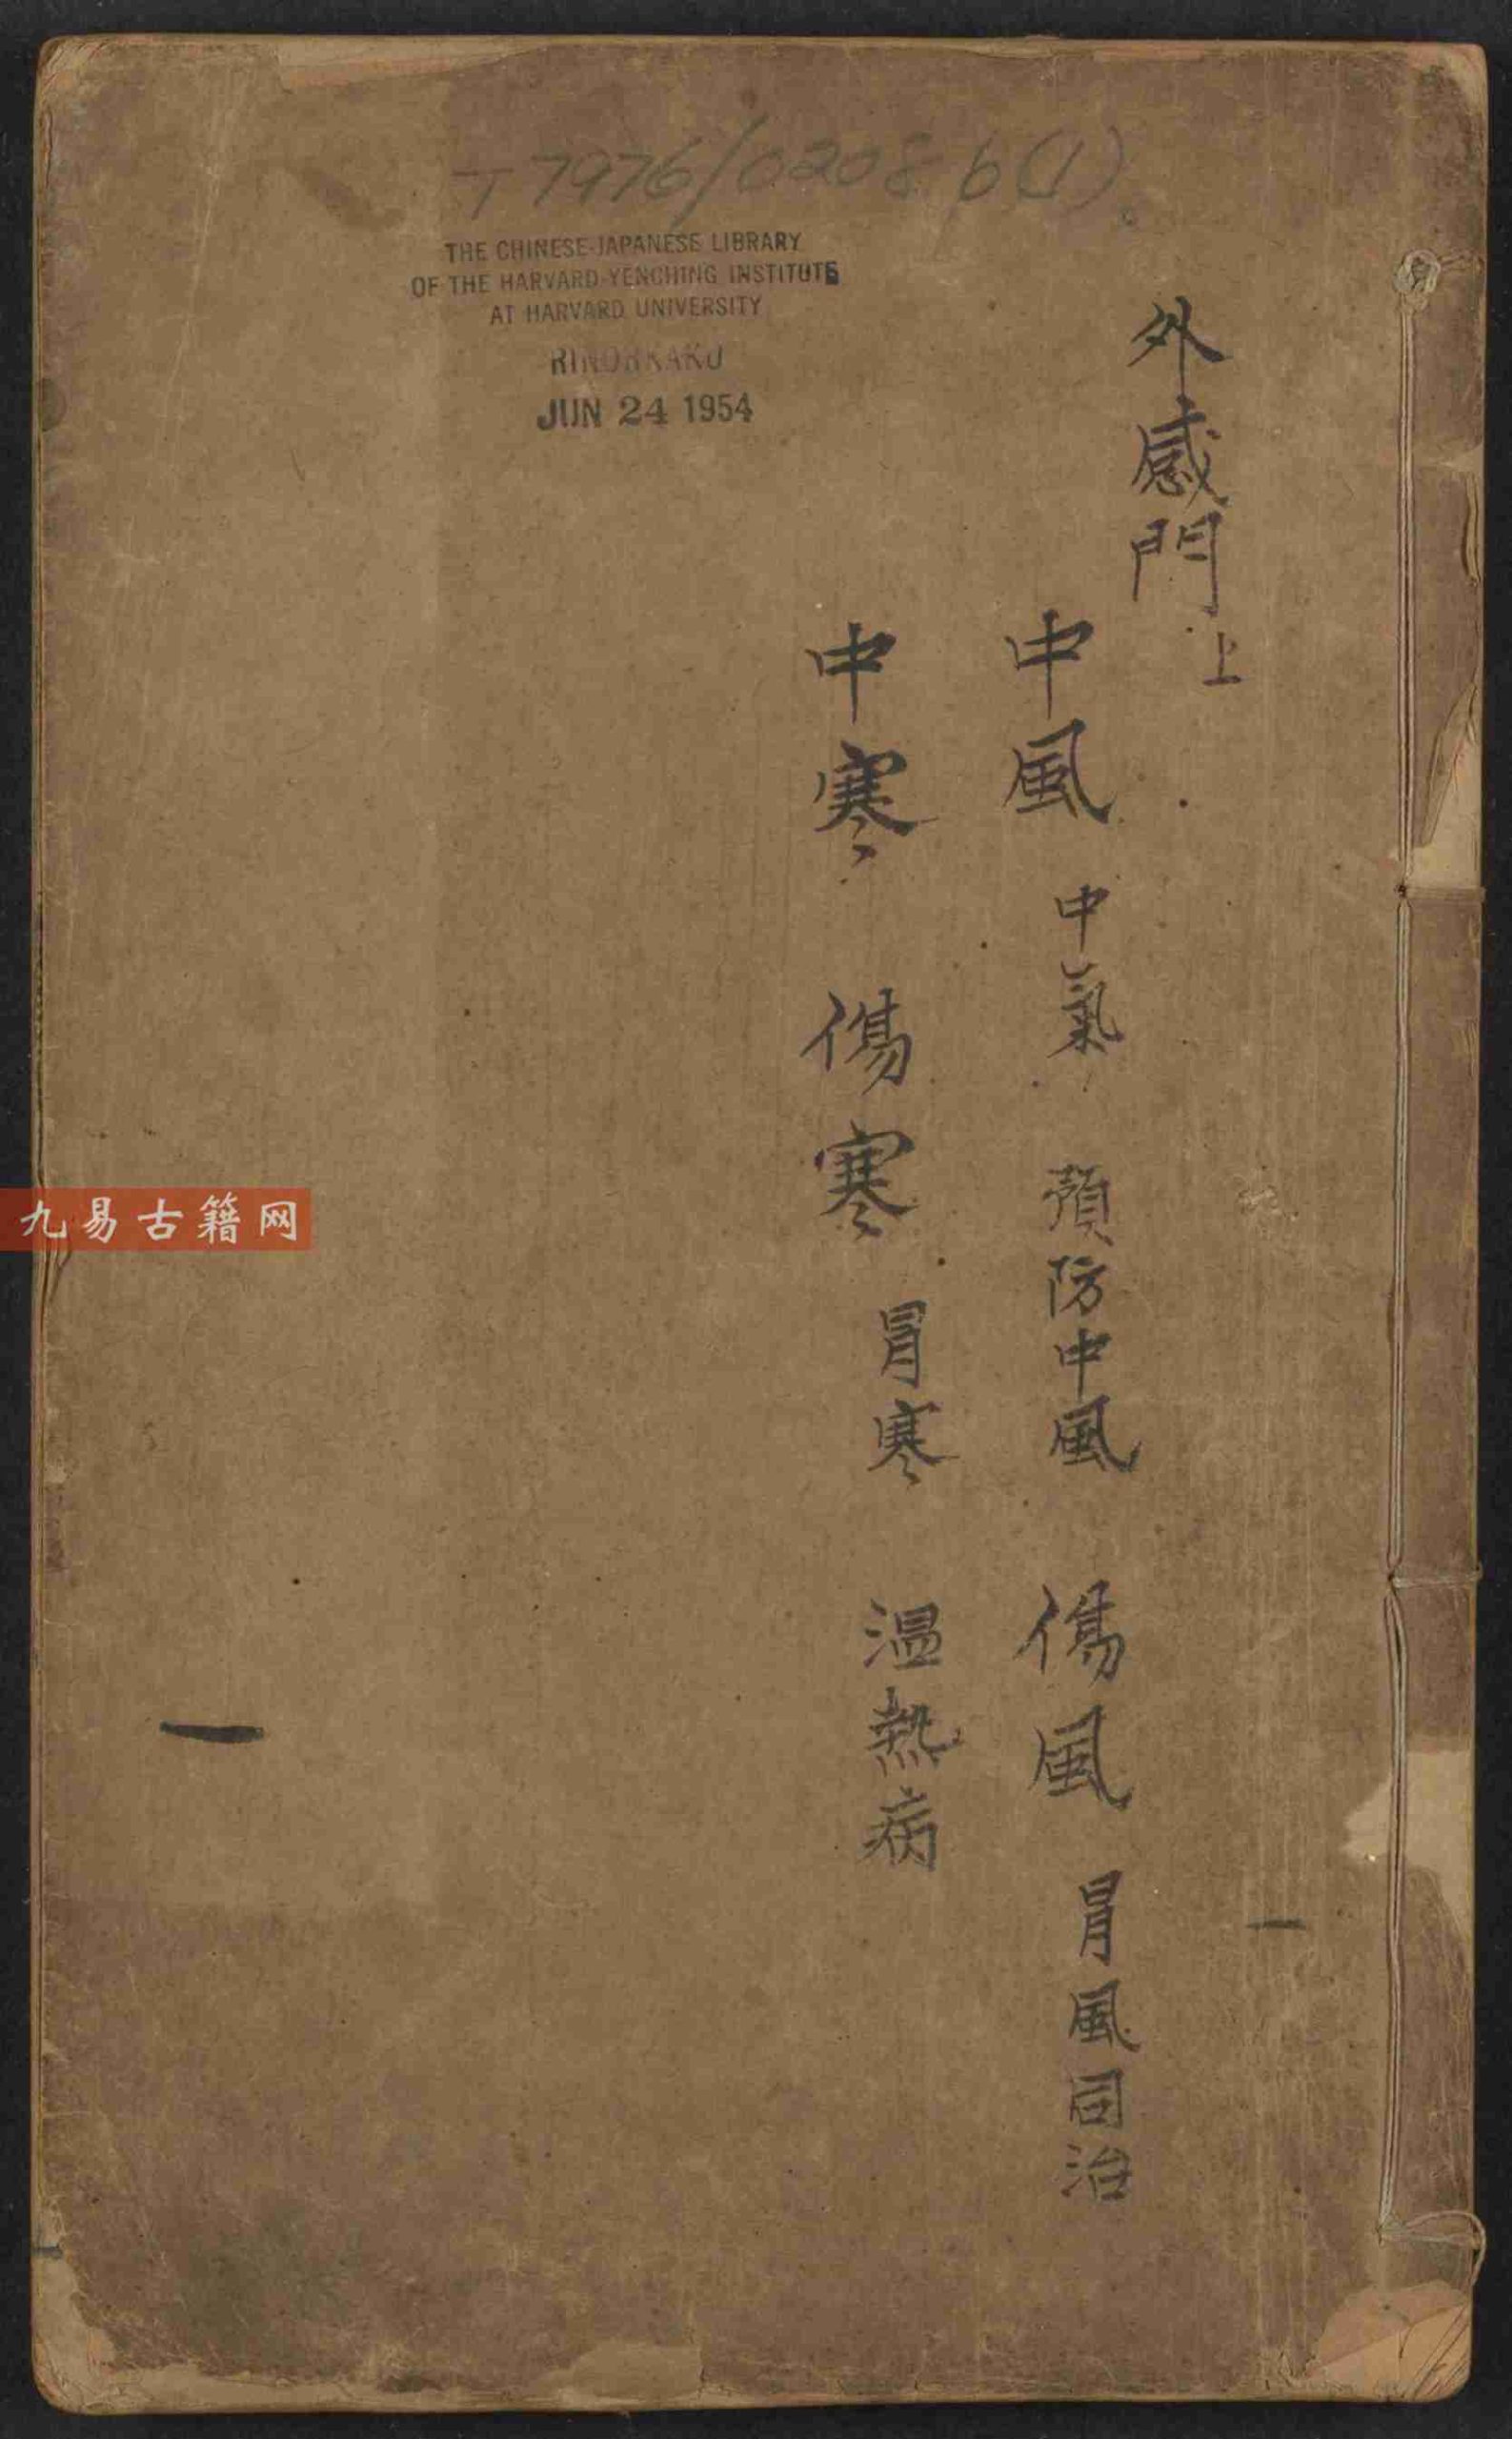 T 7976/0208 b(1)
THE CHINESE-JAPANESE LIBRARY
OF THE HARVARD-YENCHING INSTITUTE
AT HARVARD UNIVERSITY
RINOHKAKU
JUN 24 1954
外感門上
中風 中氣 預防中風 傷風 冒風同治
中寒 傷寒 冒寒 温熱病
一
一
九易古籍网